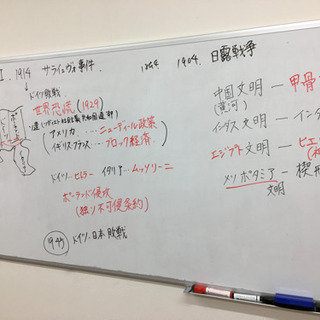 I. 1914 サライェヴォ事件
ドイツ敗戦
世界恐慌 (1929)
アメリカ....ニューディール政策
イギリス フランス....ブロック経済
ドイツ..ヒトラー イタリア..ムッソリーニ
ポーランド侵攻
(独ソ不可侵条約)
1945 ドイツ..日本 敗戦
1894 1904 日露戦争
中国文明 ー 甲骨
(黄河)
インダス 文明 ー イン
エジプト 文明 ー ヒエ
メソポタミア ー 楔形
文明